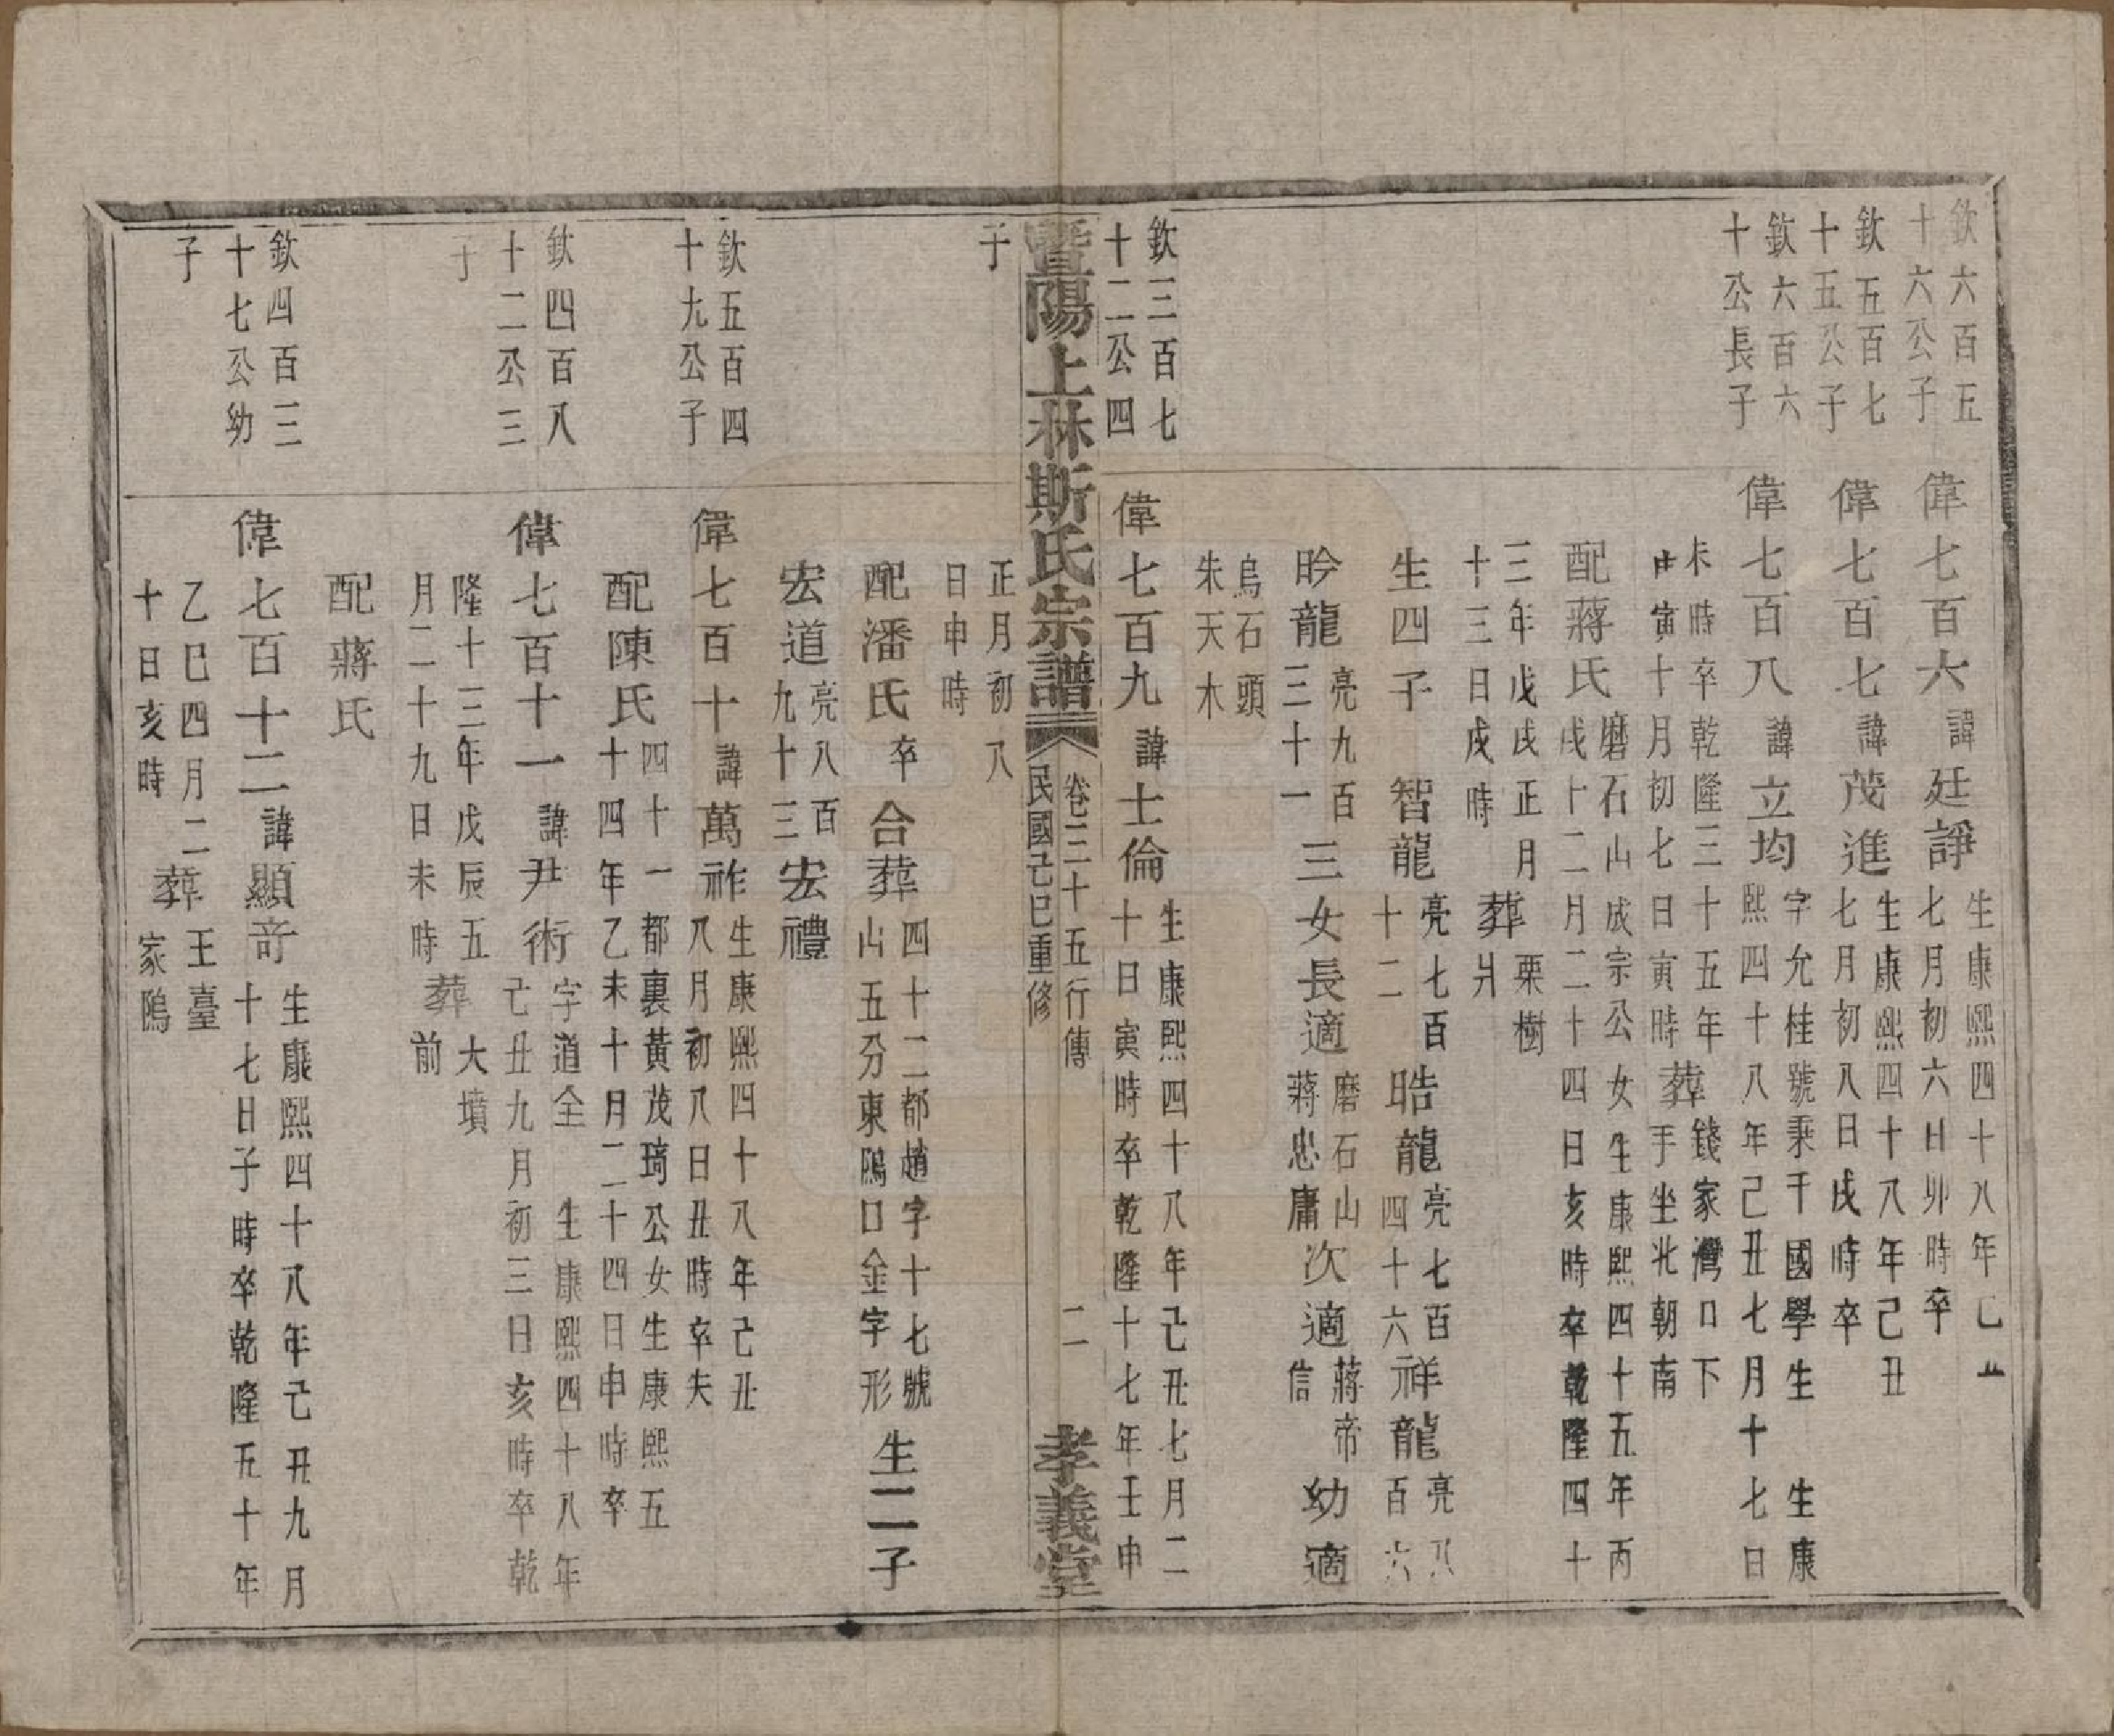 欽六百五十六公子
偉七百六諱廷諍生康熙四十八年己丑七月初六日卯時卒
欽五百七十五公子
偉七百七諱茂進生康熙四十八年己丑七月初八日戌時卒
欽六百六十公長子
偉七百八諱立均字允桂號秉千國學生 生康熙四十八年己丑七月十七日
未時卒乾隆三十五年庚寅十月初七日寅時葬錢家灣口下手坐北朝南
配蔣氏磨石山成宗公女生康熙四十五年丙戌十二月二十四日亥時卒乾隆四十
三年戊戌正月十三日戌時葬栗樹爿
生四子 智龍亮七百十二晧龍亮七百四十六祥龍亮八百六
昑龍亮九百三十一三女長適磨石山蔣忠庸次適蔣帝信幼適
烏石頭朱天木
欽三百七十二公四子
偉七百九諱士倫生康熙四十八年己丑七月二十日寅時卒乾隆十七年壬申
暨陽上林斯氏宗譜
卷三十五行傳 二
民國己巳重修
孝義堂
正月初八日申時
配潘氏卒合葬四十二都趙字十七號山五分東隖口金字形生二子
宏道亮八百九十三宏禮
欽五百四十九公子
偉七百十諱萬祚生康熙四十八年己丑八月初八日丑時卒失
配陳氏四十一都裏黃茂琦公女生康熙五十四年乙未十月二十四日申時卒
欽四百八十二公三子
偉七百十一諱尹術字道全 生康熙四十八年己丑九月初三日亥時卒乾
隆十三年戊辰五月二十九日未時葬大墳前
配蔣氏
欽四百三十七公幼子
偉七百十二諱顯奇生康熙四十八年己丑九月十七日子時卒乾隆五十年
乙巳四月二十日亥時葬王臺家隖